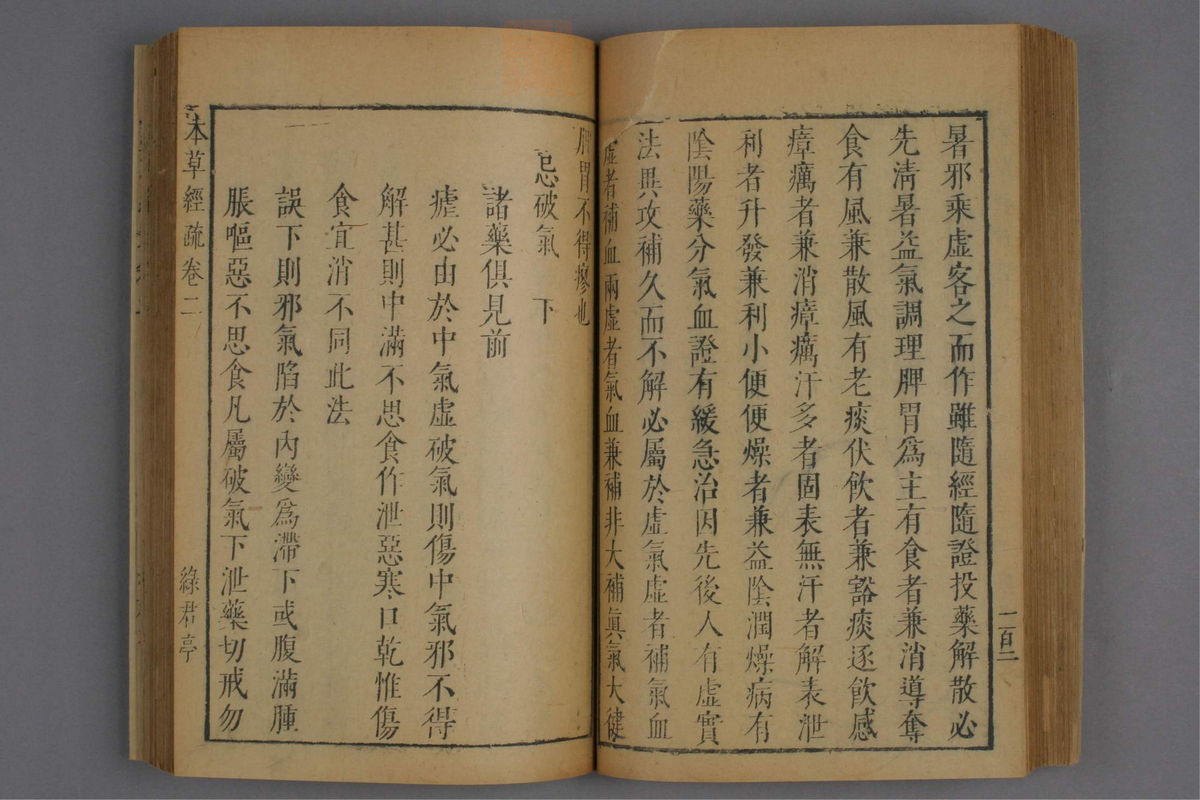 暑邪乘虛客之而作雖隨經隨證投藥解散必
先清暑益氣調理脾胃爲主有食者兼消導奪
食有風兼散風有老痰伏飲者兼豁痰逐飲感
瘴癘者兼消瘴癘汗多者固表無汗者解表泄
利者升發兼利小便便燥者兼益陰潤燥病有
陰陽藥分氣血證有緩急治因先後人有虛實
法異攻補久而不解必屬於虛氣虛者補氣血
虛者補血兩虛者氣血兼補非大補眞氣大健
脾胃不得瘳也
忌破氣 下
諸藥俱見前
瘧必由於中氣虛破氣則傷中氣邪不得
解甚則中滿不思食作泄惡寒口乾惟傷
食宜消不同此法
誤下則邪氣陷於內變爲滯下或腹滿腫
脹嘔惡不思食凡屬破氣下泄藥切戒勿
本草經疏 卷二
綠君亭
一百二